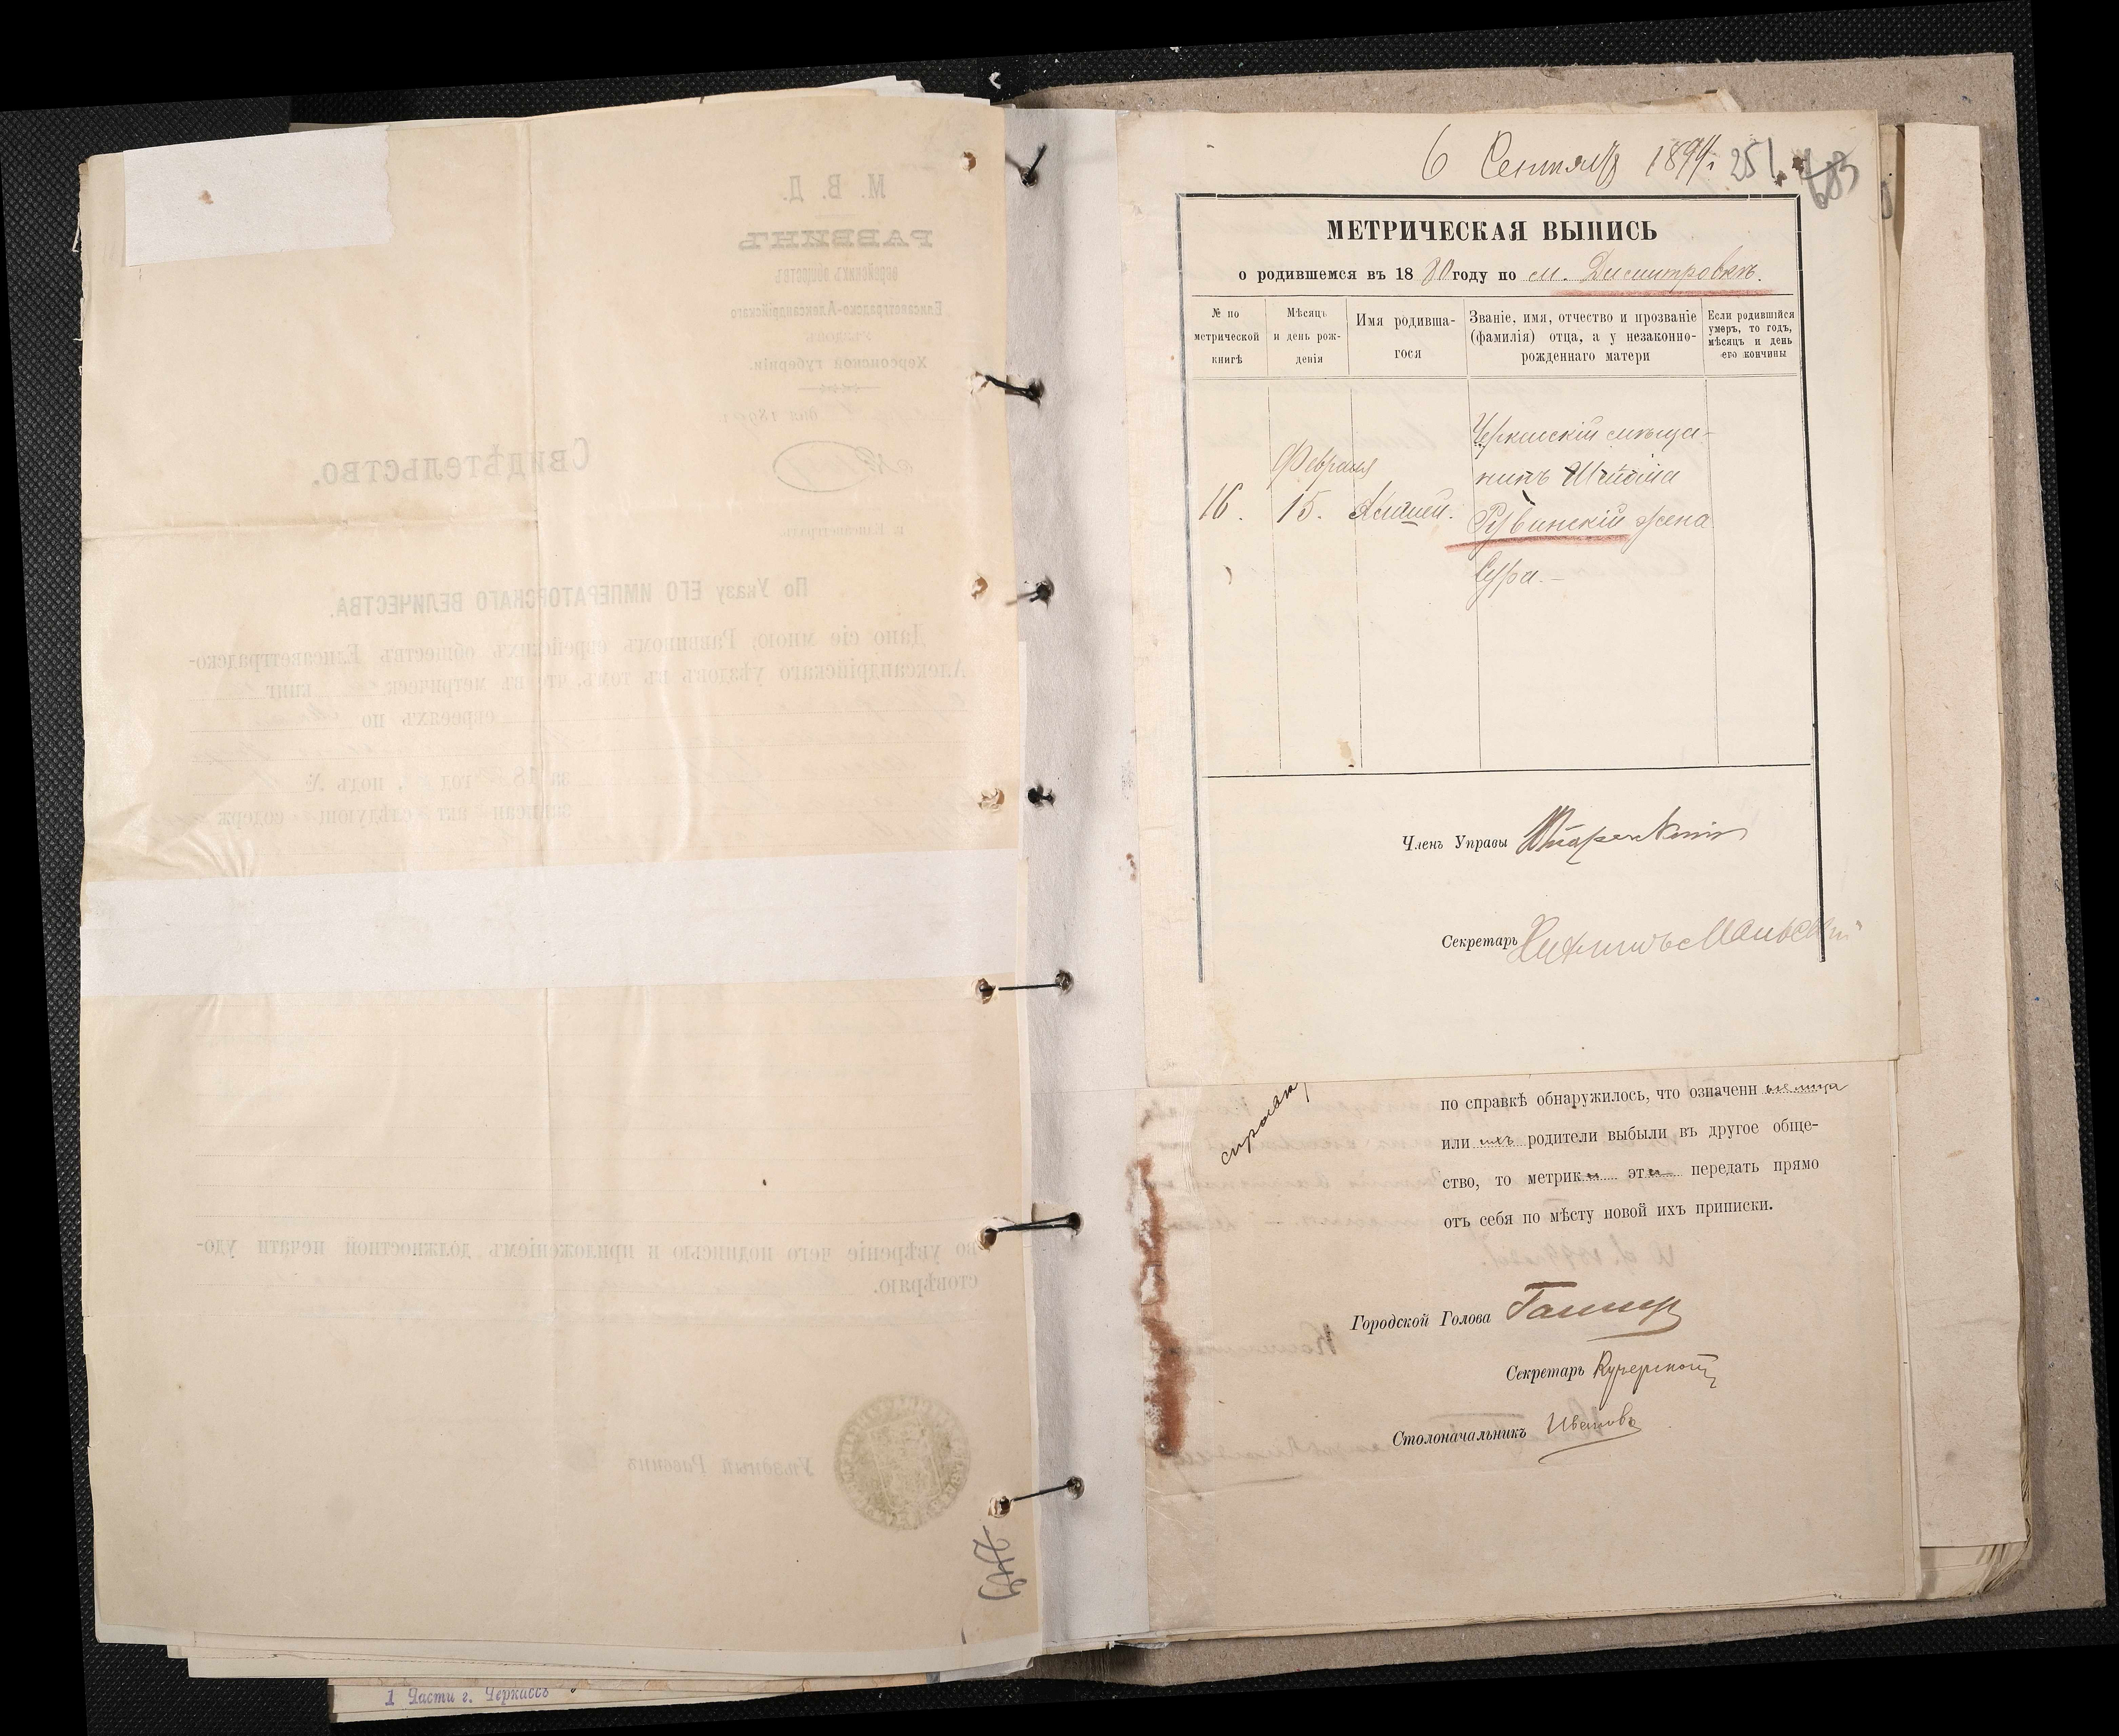 М. В. Д.
РАВВИНЪ
еврейскихъ обществъ
Елисаветградско-Александрійскаго
уѣздовъ
Херсонской губерніи.
дня 189
Свидѣтельство.
г. Елисаветградъ.
По Указу ЕГО ИМПЕРАТОРСКАГО ВЕЛИЧЕСТВА.
Дано сіе мною, Раввиномъ еврейскихъ обществъ Елисаветградско-
Александрійскаго уѣздовъ въ томъ, что въ метрическ книг
евреяхъ по
за 18 год , подъ №
записан акт слѣдующ содерж
во увѣреніе чего подписью и приложеніемъ должностной печати удо-
стовѣряю.
Уѣздный Раввинъ
1 Части г. Черкассъ
6 Сентября 1894 г. 251
683
МЕТРИЧЕСКАЯ ВЫПИСЬ
о родившемся въ 1880 году по м. Димитровкѣ.
№ по метрической книгѣ
Мѣсяцъ и день рожденія
Имя родившагося
Званіе, имя, отчество и прозваніе (фамилія) отца, а у незаконнорожденнаго матери
Если родившійся умеръ, то годъ, мѣсяцъ и день его кончины
Черкаскій мѣща-
Февраля
нинъ
16. 15. Рувинскій жена
Сура. –
Членъ Управы
Секретарь
по справкѣ обнаружилось, что означенныя лица
или ихъ родители выбыли въ другое обще-
ство, то метрики эти передать прямо
отъ себя по мѣсту новой ихъ приписки.
Городской Голова
Секретарь Кучерской
Столоначальникъ Ивановъ